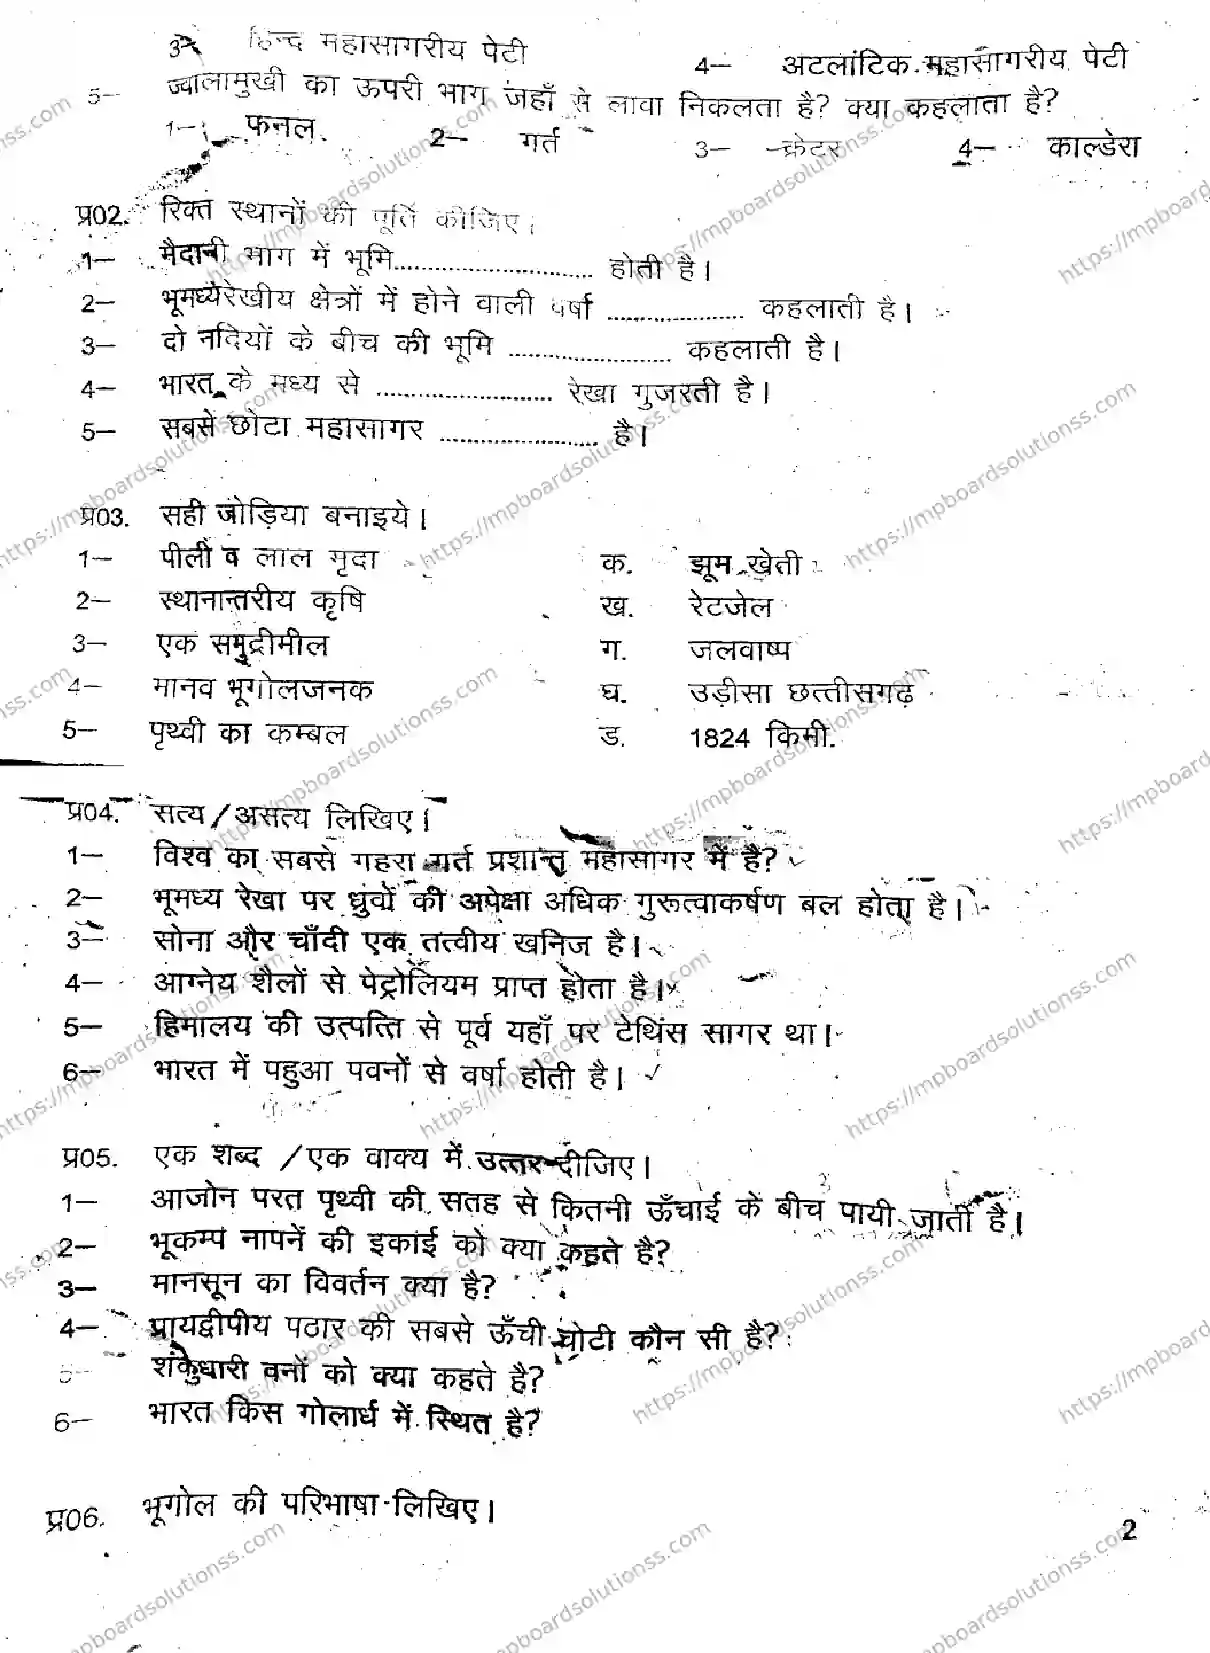 3- हिन्द महासागरीय पेटी 4- अटलांटिक महासागरीय पेटी
5- ज्वालामुखी का ऊपरी भाग जहाँ से लावा निकलता है? क्या कहलाता है?
1- फनल 2- गर्त 3- क्रेटर 4- काल्डेरा
प्र02. रिक्त स्थानों की पूर्ति कीजिए।
1- मैदानी भाग में भूमि.............................. होती है।
2- भूमध्यरेखीय क्षेत्रों में होने वाली वर्षा ..................... कहलाती है।
3- दो नदियों के बीच की भूमि ......................... कहलाती है।
4- भारत के मध्य से ........................... रेखा गुजरती है।
5- सबसे छोटा महासागर ........................ है।
प्र03. सही जोड़िया बनाइये।
1- पीली व लाल मृदा क. झूम खेती
2- स्थानान्तरीय कृषि ख. रेटजेल
3- एक समुद्रीमील ग. जलवाष्प
4- मानव भूगोलजनक घ. उड़ीसा छत्तीसगढ़
5- पृथ्वी का कम्बल ड. 1824 किमी.
प्र04. सत्य/असत्य लिखिए।
1- विश्व का सबसे गहरा गर्त प्रशान्त महासागर में है?
2- भूमध्य रेखा पर ध्रुवों की अपेक्षा अधिक गुरूत्वाकर्षण बल होता है।
3- सोना और चाँदी एक तत्वीय खनिज है।
4- आग्नेय शैलों से पेट्रोलियम प्राप्त होता है।
5- हिमालय की उत्पत्ति से पूर्व यहाँ पर टेथिंस सागर था।
6- भारत में पहुआ पवनों से वर्षा होती है।
प्र05. एक शब्द /एक वाक्य में उत्तर दीजिए।
1- आजोन परत पृथ्वी की सतह से कितनी ऊँचाई के बीच पायी जाती है।
2- भूकम्प नापनें की इकाई को क्या कहते है?
3- मानसून का विवर्तन क्या है?
4- प्रायद्वीपीय पठार की सबसे ऊँची चोटी कौन सी है?
5- शंकुधारी वनों को क्या कहते है?
6- भारत किस गोलार्ध में स्थित है?
प्र06. भूगोल की परिभाषा लिखिए।
2
https://mpboardsolutionss.com